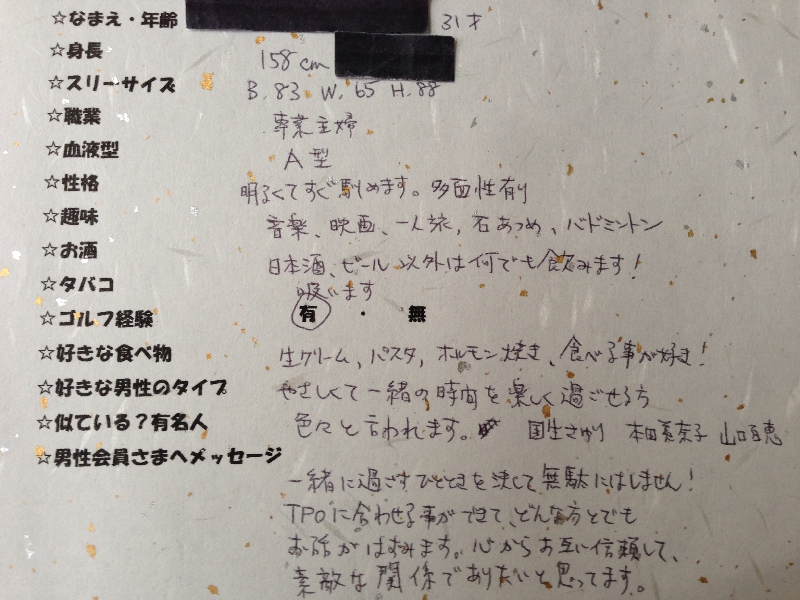 ☆なまえ・年齢 31才
☆身長 158cm
☆スリーサイズ B.83 W.65 H.88
☆職業 専業主婦
☆血液型 A型
☆性格 明るくてすぐ馴じめます。多面性有り
☆趣味 音楽、映画、一人旅、石あつめ、バドミントン
☆お酒 日本酒、ビール以外は何でも飲みます!
☆タバコ 吸います
☆ゴルフ経験 有 ・ 無
☆好きな食べ物 生クリーム、パスタ、ホルモン焼き、食べる事が好き!
☆好きな男性のタイプ やさしくて一緒の時間を楽しく過ごせる方
☆似ている?有名人 色々と言われます。 国生さゆり 本田美奈子 山口百恵
☆男性会員さまへメッセージ
一緒に過ごすひとときを決して無駄にはしません!
TPOに合わせる事ができて、どんな方とでも
お話がはずみます。心からお互い信頼して、
素敵な関係でありたいと思ってます。